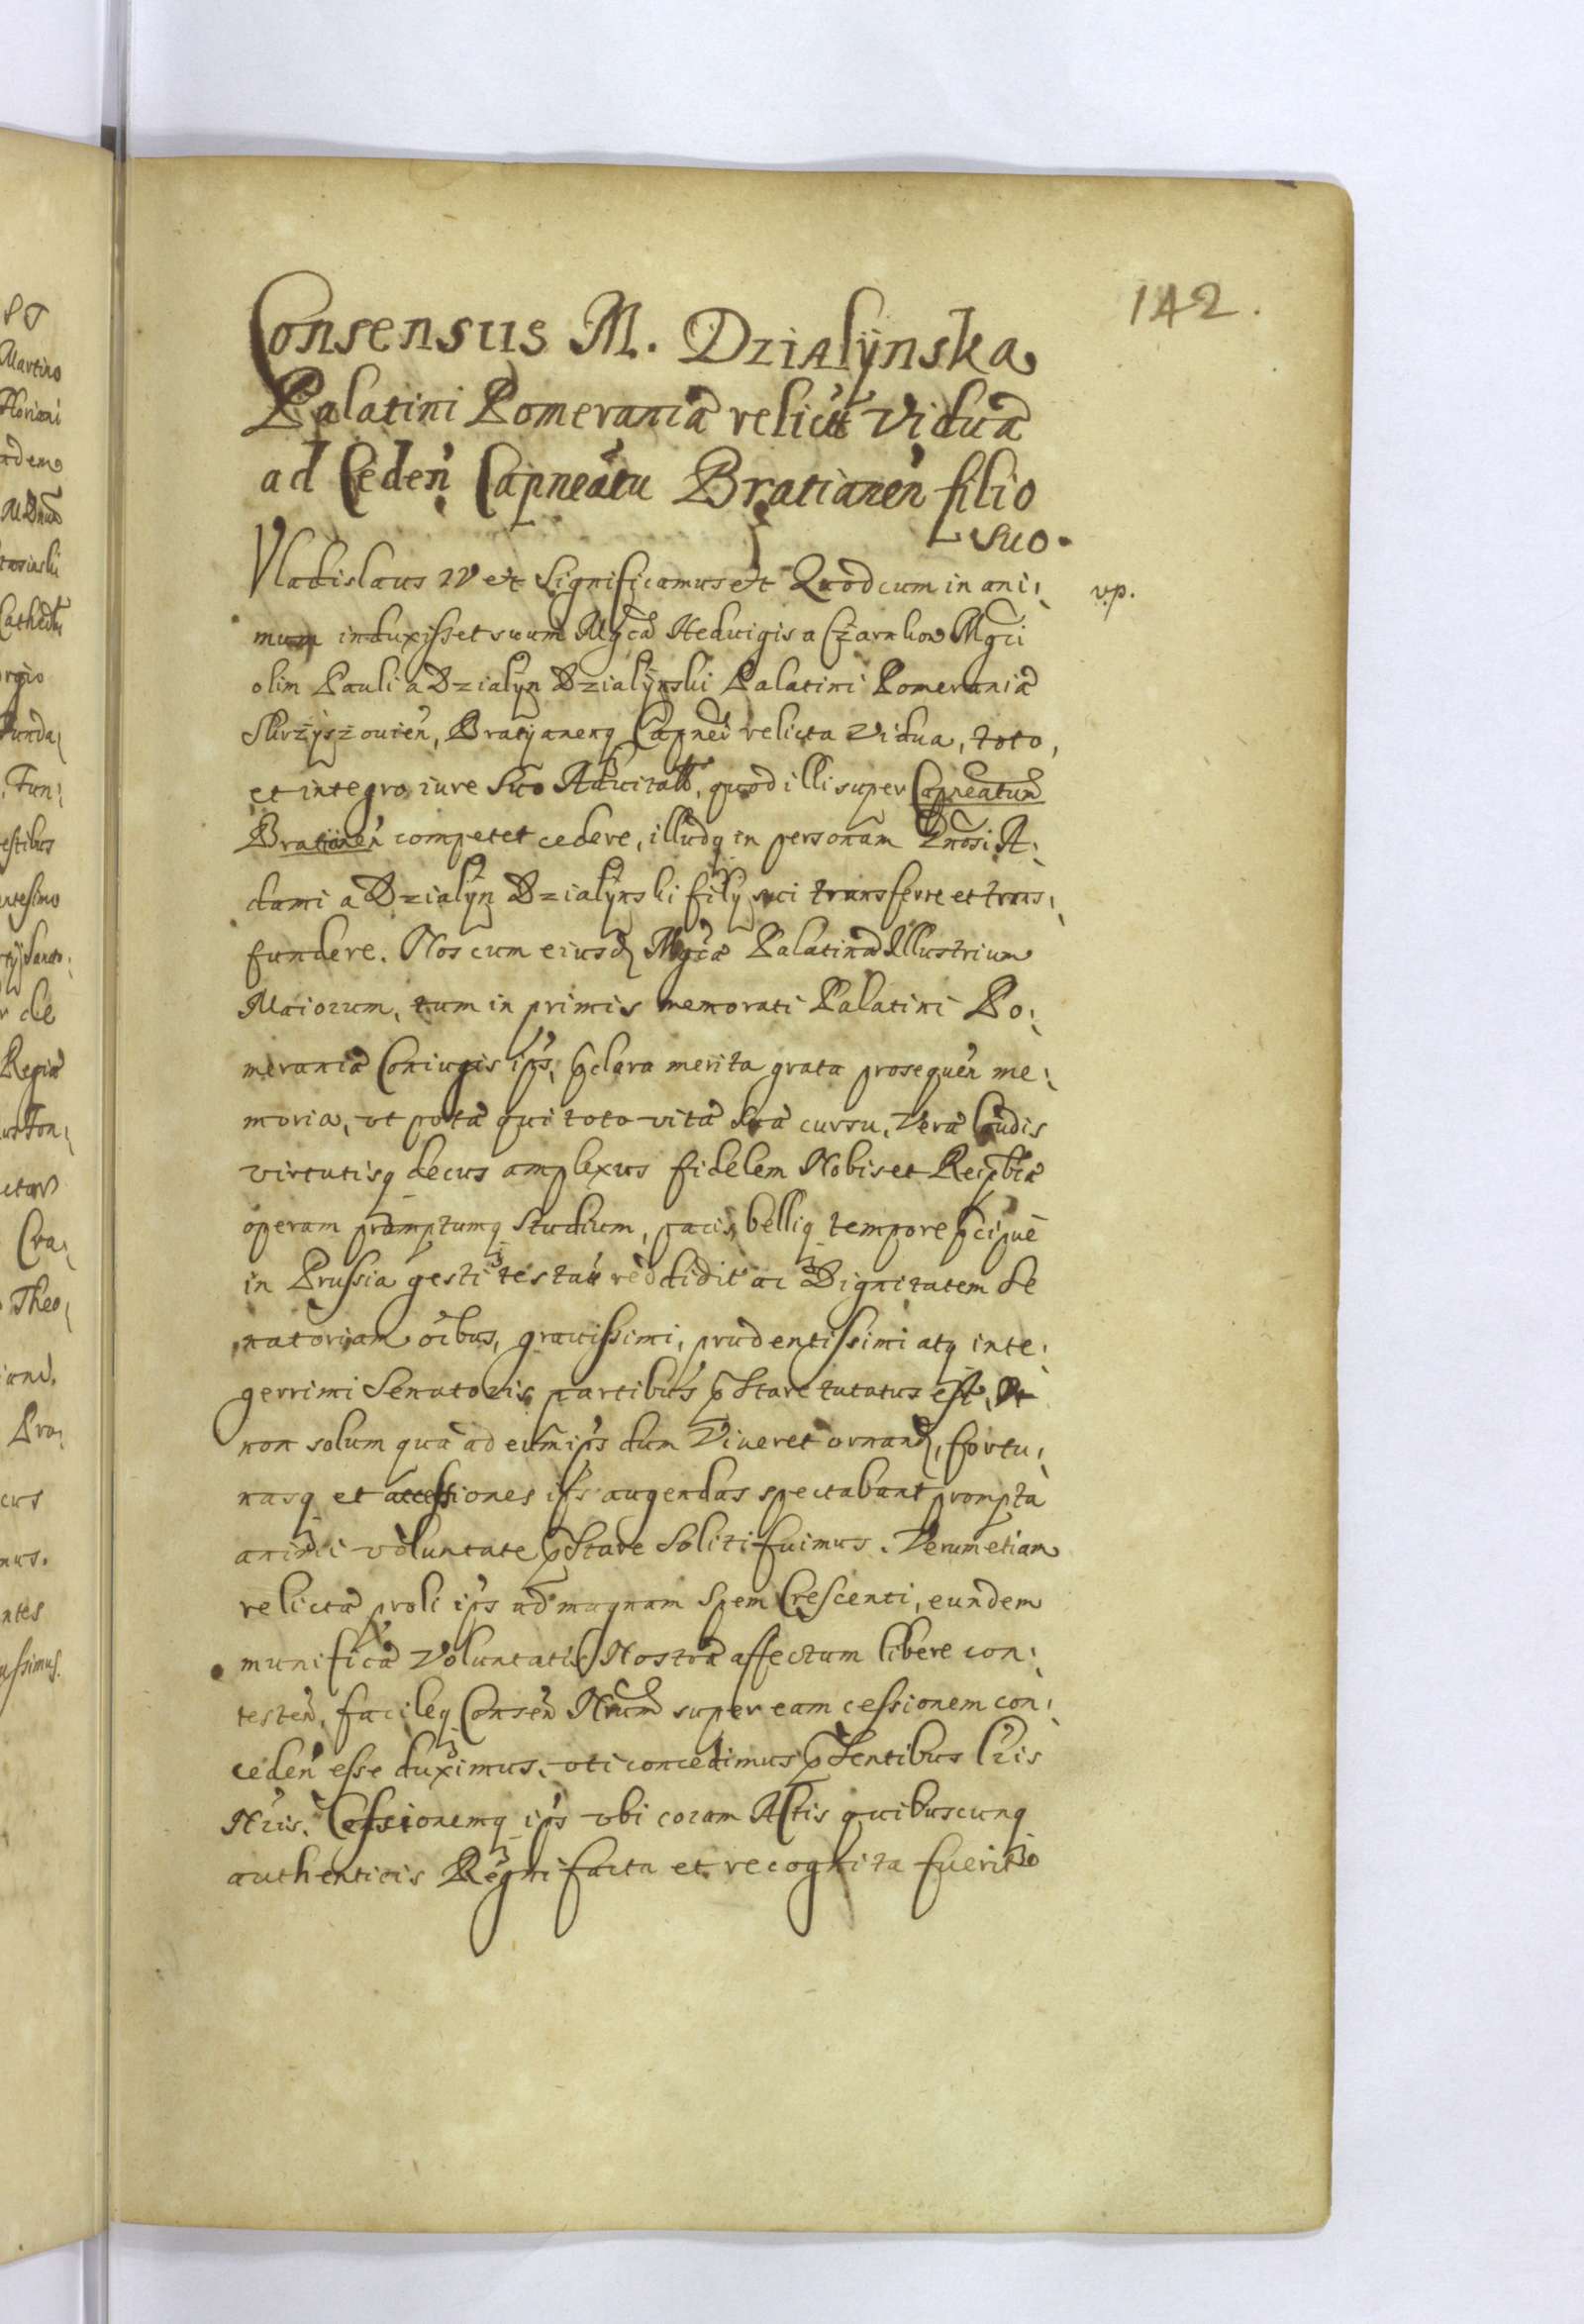 142.
Consensus M. Dzialÿnska
Palatini Pomeraniæ relictæ Viduæ
ad Ceden̄ Capneātu Bratianen̄ filio
suo.
Vladislaus IV etc Significamus etc Quod cum in ani:
v.p.
mum induxisset suum Mg̃ca Heduigis a Czarnkow Mg̃ci
olim Pauli a Dzialÿn Dzialÿnski Palatini Pomeraniæ
Bratÿanenq Capnei relicta Vidua, toto,
et integro iure suo Aduitali, quod illi super Capneatum
Bratianen̄ competet cedere, illudq in personam Gn̄osi A:
dami a Dzialÿn Dzialÿnski filÿ sui transferre et trans:
fundere. Nos cum eiusd Mg̃cæ Palatinæ Illustrium
Maiorum, tum in primis memorati Palatini Po:
meraniæ Coniugis ips, p̄clara merita grata prosequen̄ me:
moria, ut pote qui toto vitæ suæ cursu, Veræ laudis
virtutisq decus amplexus fidelem Nobis et Reipblcæ
operam promptumq studium, pacis, belliq tempore p̄cipuè
in Prussia gesti testatu reddidit ac Dignitatem Se
natoriam oibus, grauissimi, prudentissimi atq inte:
gerrimi Senatoris partibus p̄stare tutatus est, Vt
non solum quæ ad eum ips dum Viueret ornand, fortu:
nasq et accessiones ips augendas spectabant prompta
animi voluntate p̄stare Soliti fuimus. Verum etiam
relictæ proli ips ad magnam Spem Crescenti, eundem
munificæ Voluntatis Nostræ affectum libere con:
testen̄, facileq Consen̄ Nr̄um super eam cessionem con:
ceden̄ esse duximus, uti concedimus p̄sentibus Lr̄is
Nr̄is. Cessionemq ips ubi coram Actis quibuscunq
authenticis Regni facta et recognita fuerit